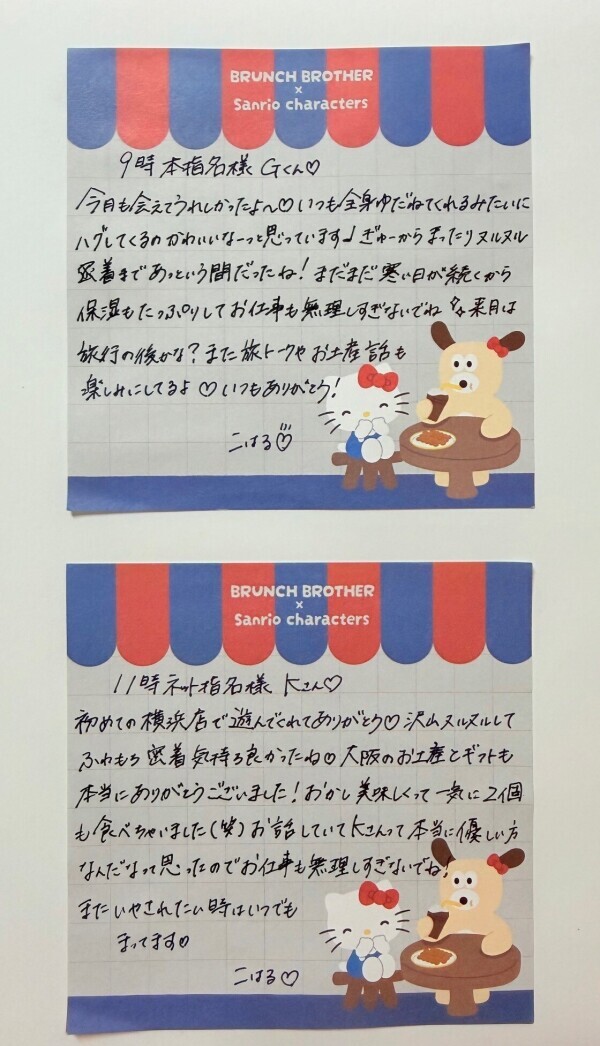 BRUNCH BROTHER
×
Sanrio characters
9時 本指名様 Gくん♡
今月も会えてうれしかったよ〜♡いつも全身ゆだねてくれるみたいに
ハグしてくるのかわいいなーっと思っています♩ぎゅーからまったりヌルヌル
密着まであっという間だったね!まだまだ寒い日が続くから
保湿もたっぷりしてお仕事も無理しすぎないでね✨来月は
旅行の後かな?また旅トークやお土産話も
楽しみにしてるよ♡いつもありがとう!
こはる♡
BRUNCH BROTHER
×
Sanrio characters
11時 ネット指名様 Kさん♡
初めての横浜店で遊んでくれてありがとう♡沢山ヌルヌルして
ふわもち密着気持ち良かったね♡大阪のお土産とギフトも
本当にありがとうございました!おかし美味しくって一気に2個
も食べちゃいました(笑)お話していてKさんって本当に優しい方
なんだなって思ったのでお仕事も無理しすぎないでね!
またいやされたい時はいつでも
まってます♡
こはる♡